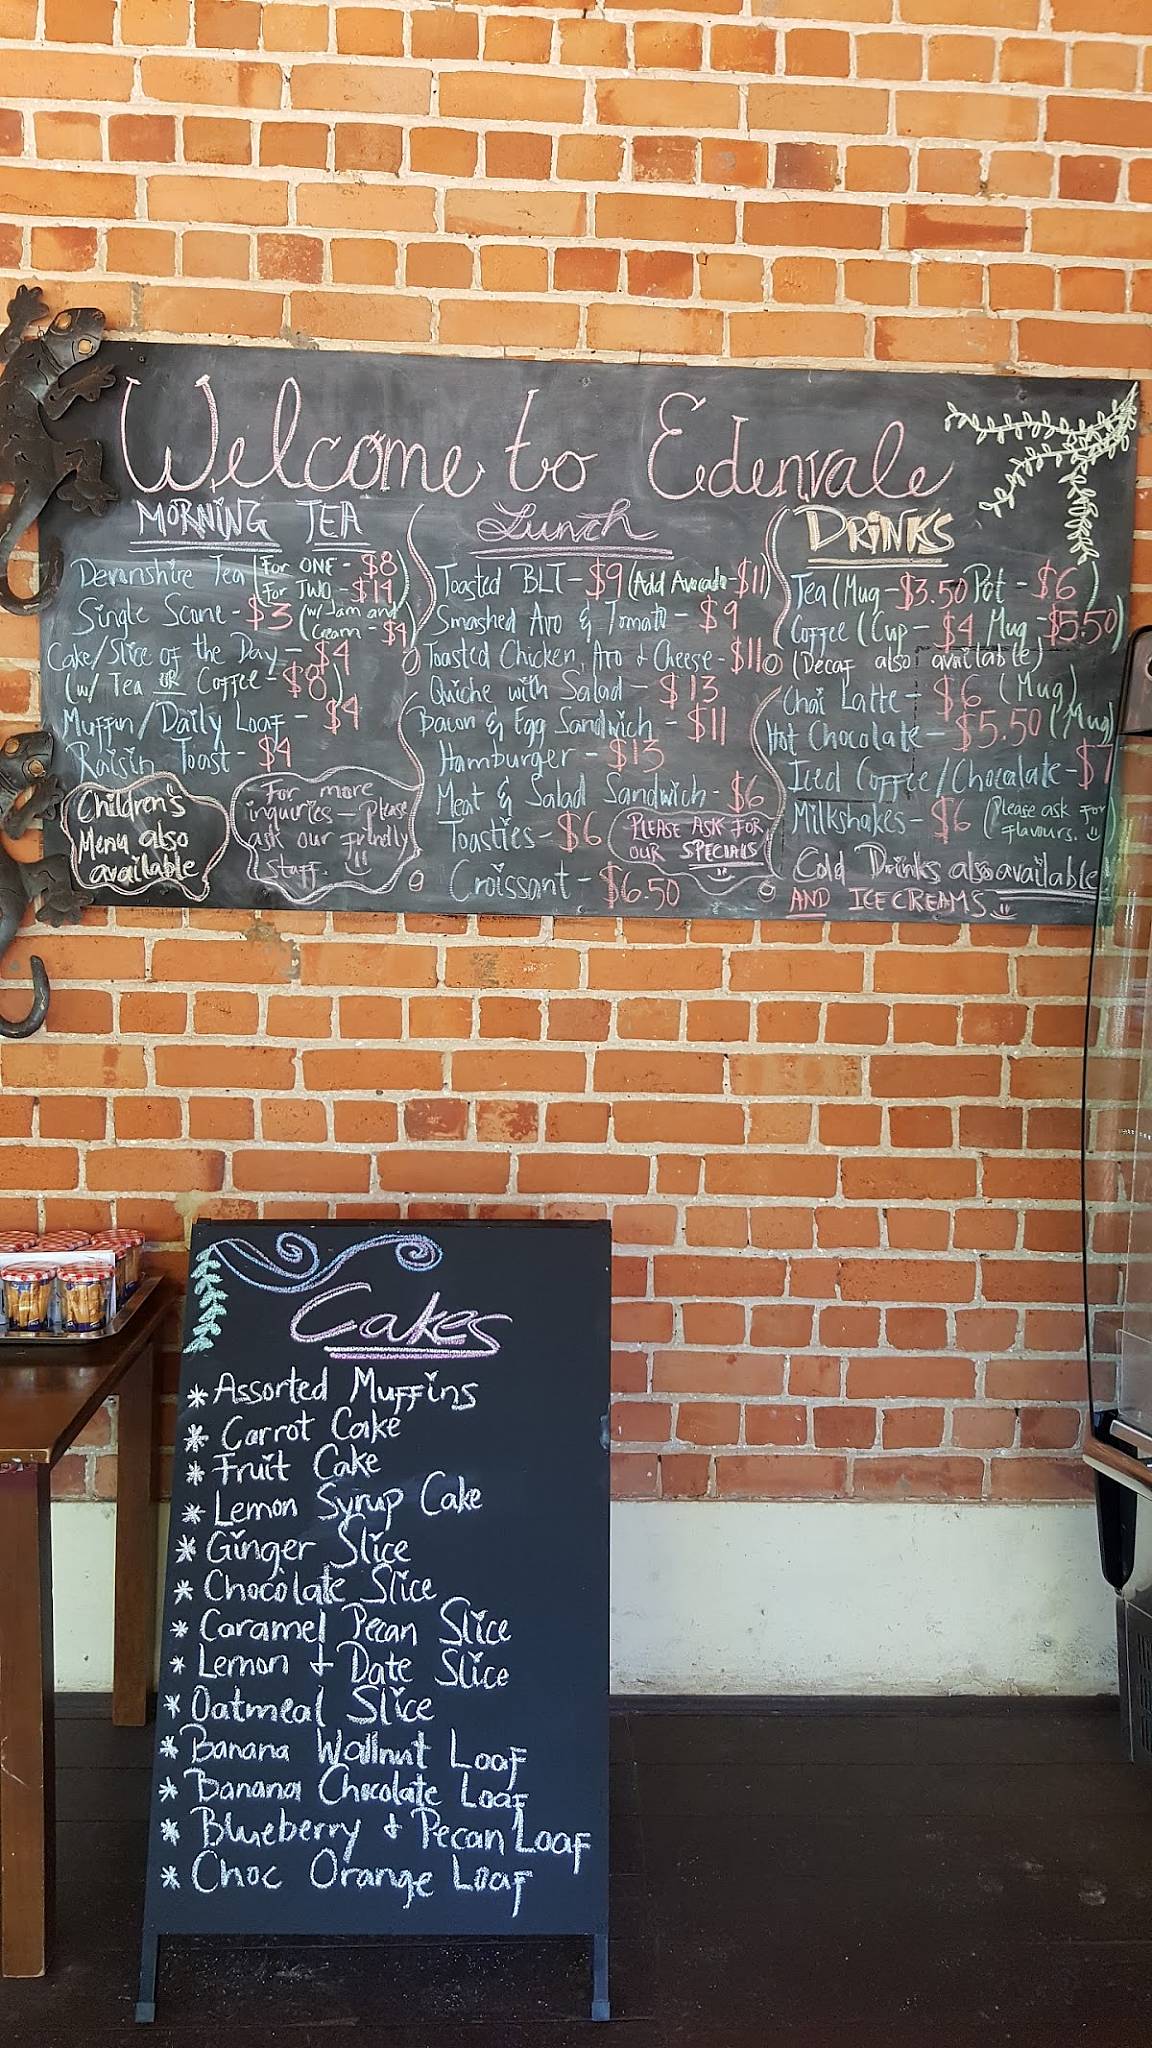 Welcome to Edenvale
MORNING TEA
Devonshire Tea (For ONE - $8
For TWO - $14)
Single Scone - $3 (w/ Jam and
Cream - $4)
Cake/Slice of the Day - $4
(w/ Tea OR Coffee - $8)
Muffin/Daily Loaf - $4
Raisin Toast - $4
Children's
Menu also
available
For more
inquiries - Please
ask our friendly
staff.
Lunch
Toasted BLT - $9 (Add Avocado - $11)
Smashed Avo & Tomato - $9
Toasted Chicken, Avo + Cheese - $11
Quiche with Salad - $13
Bacon & Egg Sandwich - $11
Hamburger - $13
Meat & Salad Sandwich - $6
Toasties - $6
Croissant - $6.50
PLEASE ASK FOR
OUR SPECIALS
DRINKS
Tea (Mug - $3.50 Pot - $6)
Coffee (Cup - $4, Mug - $5.50)
(Decaf also available)
Chai Latte - $6 (Mug)
Hot Chocolate - $5.50 (Mug)
Iced Coffee/Chocolate - $7
Milkshakes - $6 (Please ask for
flavours.
Cold Drinks also available
AND ICECREAMS
Cakes
* Assorted Muffins
* Carrot Cake
* Fruit Cake
* Lemon Syrup Cake
* Ginger Slice
* Chocolate Slice
* Caramel Pecan Slice
* Lemon + Date Slice
* Oatmeal Slice
* Banana Wallnut Loaf
* Banana Chocolate Loaf
* Blueberry + Pecan Loaf
* Choc Orange Loaf